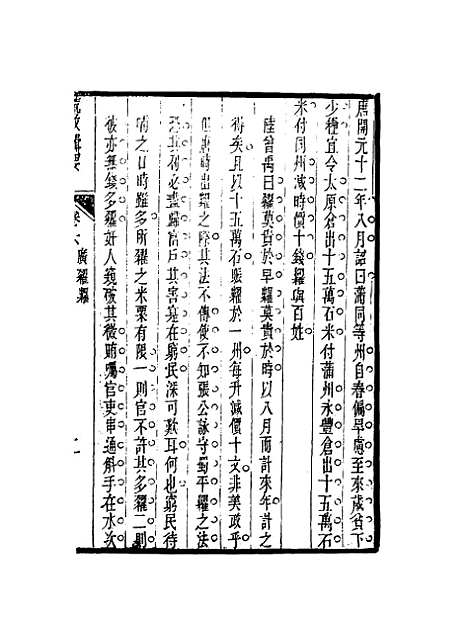 唐開元十二年八月詔曰蒲同等州自春偏旱慮至來歲貧下
少種宜令太原倉出十五萬石米付蒲州永豐倉出十五萬石
米付同州減時價十錢糶與百姓
陸曾禹曰糴莫貴於早糶莫貴於時以八月而計來年計之
得矣且以十五萬石賑糶於一州每升減價十文非美政乎
但臨時出糶之際其法不傳使不知張公詠守蜀平糶之法
其利必盡歸富戶其害宴在窮民深可歎耳何也窮民待
哺之日時雖多所糶之米粟有限一則官不許其多糴二則
彼亦無錢多糴奸人窺破其微賄囑官吏串通斛手在水次
卷六 廣糴糶 二